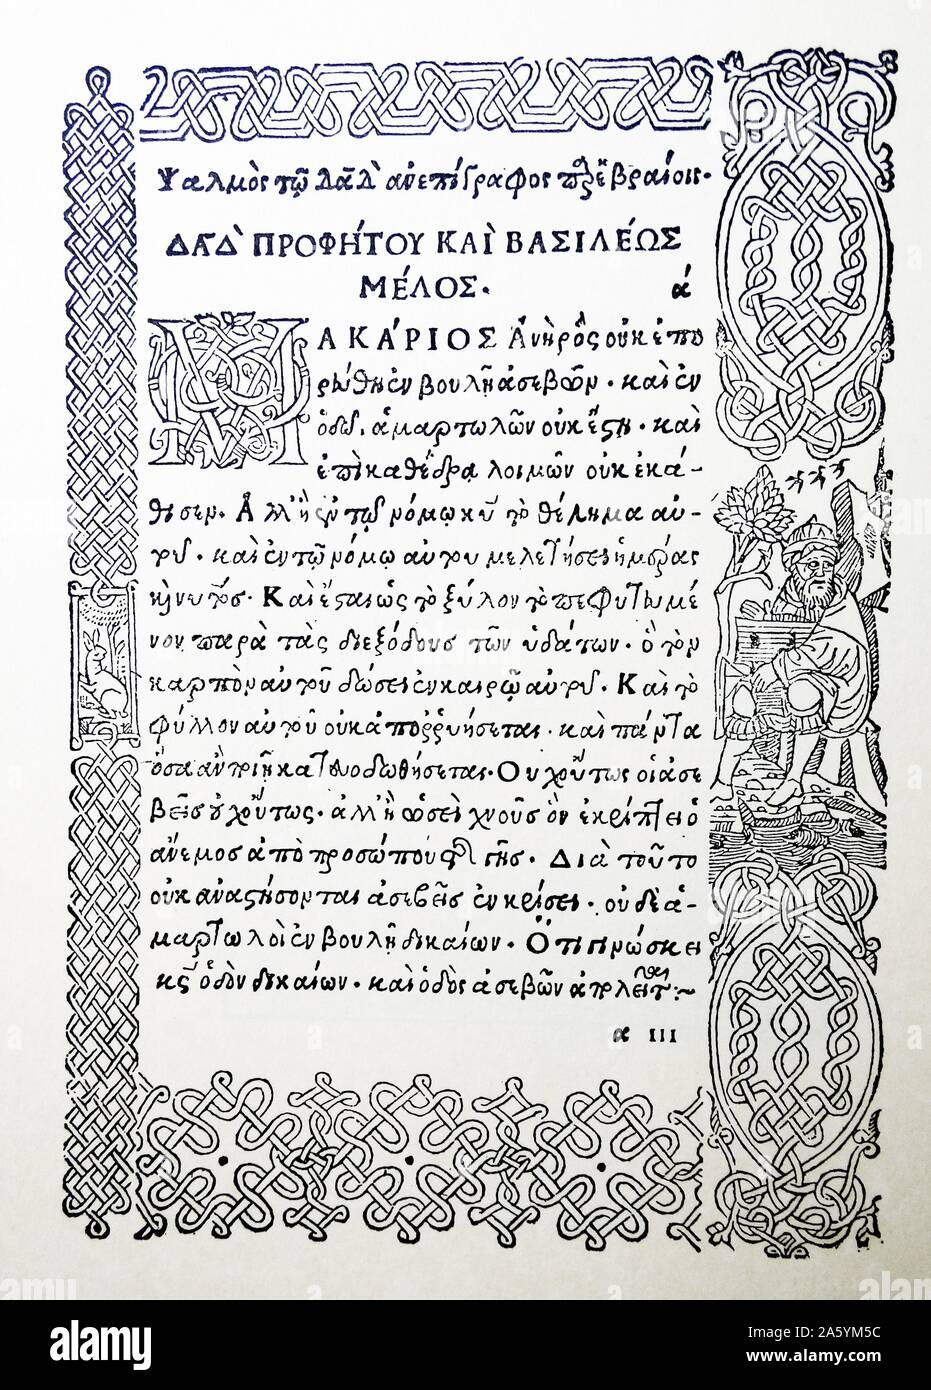 Ψαλμὸς τῷ Δαδ ἀνεπίγραφος παρ' ἑβραίοις.
ΔΑΔ ΠΡΟΦΉΤΟΥ ΚΑῚ ΒΑΣΙΛΈΩΣ
ΜΈΛΟΣ.
ά
ΜΑΚΆΡΙΟΣ Ἀνὴρ ὃς οὐκ ἐπο
ρεύθη ἐν βουλῇ ἀσεβῶν. καὶ ἐν
ὁδῷ ἁμαρτωλῶν οὐκ ἔστη. καὶ
ἐπὶ καθέδρᾳ λοιμῶν οὐκ ἐκά-
θισεν. Ἀλλ' ἢ ἐν τῷ νόμῳ κυ τὸ θέλημα αὐ-
τοῦ. καὶ ἐν τῷ νόμῳ αὐτοῦ μελετήσει ἡμέρας
καὶ νυκτός. Καὶ ἔσται ὡς τὸ ξύλον τὸ πεφυτευμέ
νον παρὰ τὰς διεξόδους τῶν ὑδάτων. ὃ τὸν
καρπὸν αὐτοῦ δώσει ἐν καιρῷ αὐτοῦ. Καὶ τὸ
φύλλον αὐτοῦ οὐκ ἀπορρυήσεται. καὶ πάντα
ὅσα ἂν ποιῇ κατευοδωθήσεται. Οὐχ οὕτως οἱ ἀσε
βεῖς οὐχ οὕτως. ἀλλ' ἢ ὡσεὶ χνοῦς ὃν ἐκρίπτει ὁ
ἄνεμος ἀπὸ προσώπου τῆς γῆς. Διὰ τοῦτο
οὐκ ἀναστήσονται ἀσεβεῖς ἐν κρίσει. οὐδὲ ἁ-
μαρτωλοὶ ἐν βουλῇ δικαίων. Ὅτι γινώσκει
κς ὁδὸν δικαίων. καὶ ὁδὸς ἀσεβῶν ἀπολεῖται:~
α III
alamy
Image ID: 2A5YM5C
www.alamy.com